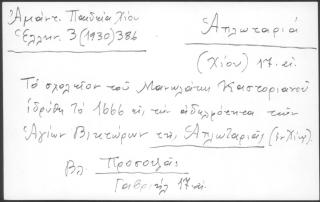 Ἀμάντ. Παιδεία Χίου
Ἑλλην. 3 (1930) 386
Ἁπλωταριά
(Χίου) 17. αἰ.
Τὸ σχολεῖον τοῦ Μανωλάκη Καστοριανοῦ
ἱδρύθη τὸ 1666 εἰς τὴν ἀδελφότητα τῶν
Ἁγίων Βικτώρων τῆς Ἁπλωταριᾶς (ἐν Χίῳ).
Βλ. Προσοψᾶς
Γαβριήλ 17. αἰ.